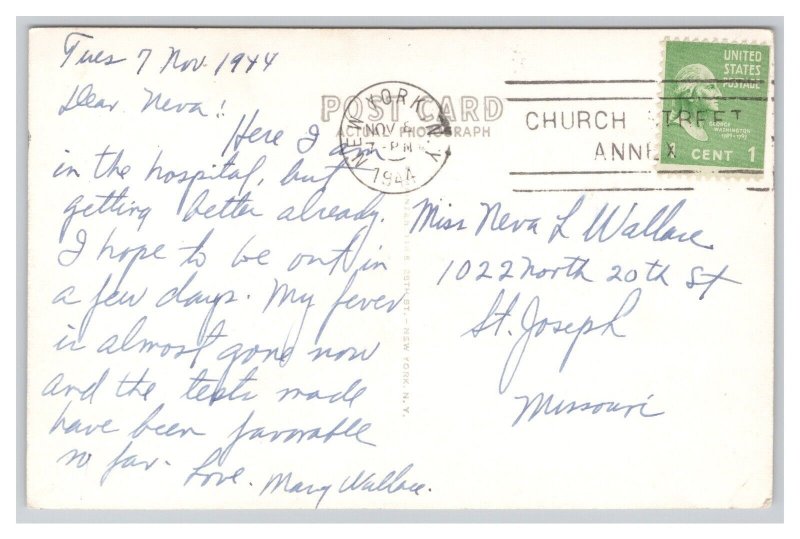 Tues 7 Nov. 1944
Dear Neva!
Here I am
in the hospital, but
getting better already.
I hope to be out in
a few days. My fever
is almost gone now
and the tests made
have been favorable
so far. Love. Mary Wallace.
POST CARD
ACTUAL PHOTOGRAPH
NEW YORK, N.Y.
NOV 8
7-PM
1944
CHURCH STREET
ANNEX
UNITED
STATES
POSTAGE
GEORGE
WASHINGTON
1789-1797
1 CENT 1
Miss Neva L Wallace
1022 North 20th St
St. Joseph
Missouri
ST. - NEW YORK, N.Y.